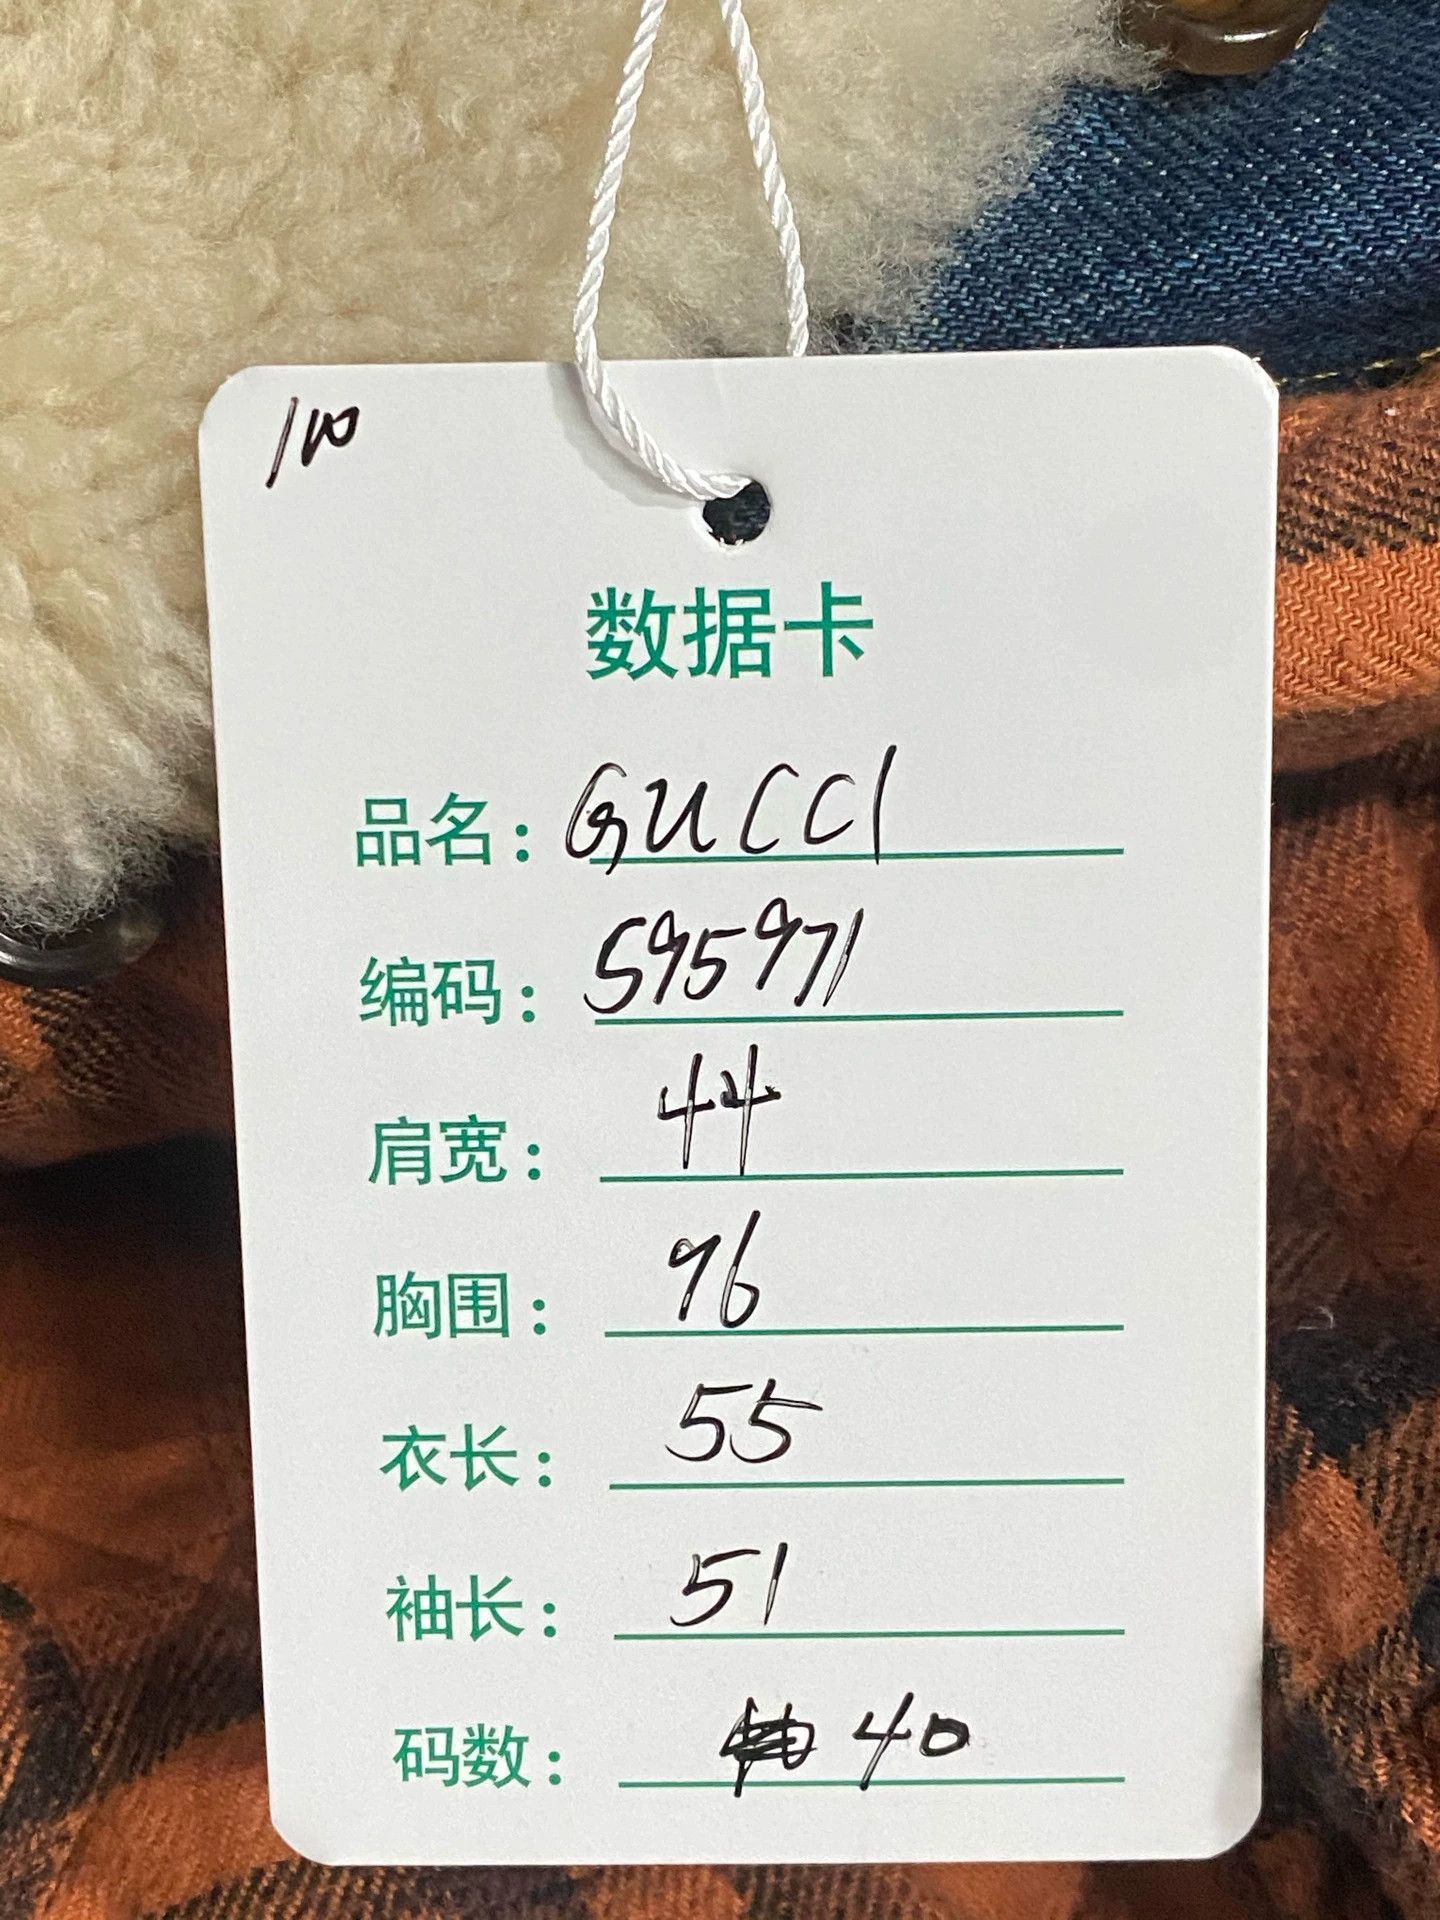 100
数据卡
品名：GUCCI
编码：595971
肩宽：44
胸围：96
衣长：55
袖长：51
码数：40